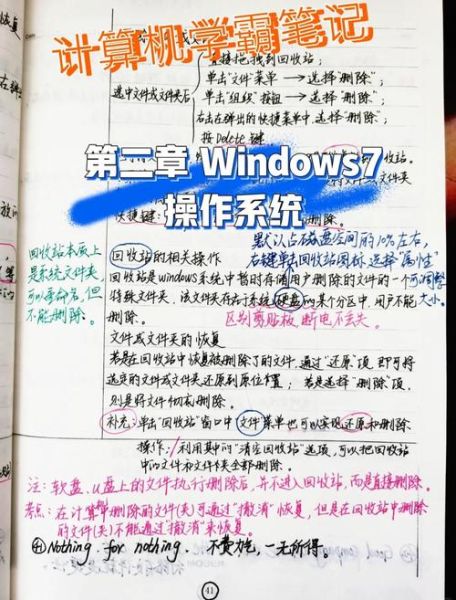 计算机学霸笔记
直接拖拽到回收站；
单击“文件”菜单 → 选择“删除”；
选中文件或文件夹后 单击“组织”按钮 → 选择“删除”；
右击在弹出的快捷菜单中，选择“删除”；
按Delete键
第二章 Windows7
操作系统
快捷键
删除。
默认占磁盘空间的10%左右，
右键单击回收站图标，选择“属性”
可调整
大小。
回收站本质上
是系统文件夹，
可以重命名，但
不能删除。
回收站的相关操作
回收站是windows系统中暂时存储用户删除的文件的一个
特殊文件夹，该文件夹所占系统硬盘的某个分区中，用户不能
删除。 区别剪贴板，断电不丢失。
文件或文件夹的恢复
若是在回收站中恢复被删除了的文件，通过“还原”项，即可将
选定的文件或文件夹还原到原位置；若是选择“删除”项，
则是将文件彻底删除。
补充：单击“回收站”窗口中 文件 菜单也可以实现还原和删除
操作；利用其中的“清空回收站”选项，可以把回收站
中的文件和文件夹全部删除。
注：软盘、U盘上的文件执行删除后，并不进入回收站，而是直接删除。
考点：在计算机中删除的文件(夹)可通过“撤消”恢复，但是在回收站中删除
的文件(夹)不能通过“撤消”来恢复。
Nothing for nothing. 不费力气，一无所得。
41